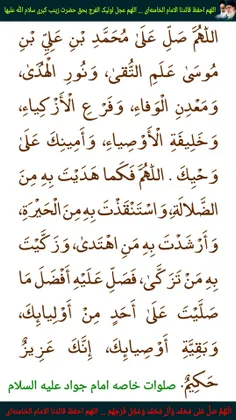 اللهم احفظ قائدنا الامام الخامنه‌ای ... اللهم عجل لولیک الفرج بحق حضرت زینب کبری سلام الله علیها
اللّٰهُمَّ صَلِّ عَلَىٰ مُحَمَّدِ بْنِ عَلِيِّ بْنِ
مُوسَىٰ عَلَمِ التُّقَىٰ، وَنُورِ الْهُدَىٰ،
وَمَعْدِنِ الْوَفَاءِ، وَفَرْعِ الْأَزْكِيَاءِ،
وَخَلِيفَةِ الْأَوْصِيَاءِ، وَأَمِينِكَ عَلَىٰ
وَحْيِكَ . اللّٰهُمَّ فَكَما هَدَيْتَ بِهِ مِنَ
الضَّلالَةِ، وَاسْتَنْقَذْتَ بِهِ مِنَ الْحَيْرَةِ،
وَأَرْشَدْتَ بِهِ مَنِ اهْتَدىٰ، وَزَكَّيْتَ
بِهِ مَنْ تَزَكّىٰ، فَصَلِّ عَلَيْهِ أَفْضَلَ مَا
صَلَّيْتَ عَلىٰ أَحَدٍ مِنْ أَوْلِيائِكَ،
وَبَقِيَّةِ أَوْصِيائِكَ، إِنَّكَ عَزِيزٌ
حَكِيمٌ. صلوات خاصه امام جواد علیه السلام
اللهُمَّ صَلِّ عَلَى مُحَمَّد وَآلِ مُحَمَّد وَعَجِّل فَرَجَهُم ... اللهم احفظ قائدنا الامام الخامنه‌ای